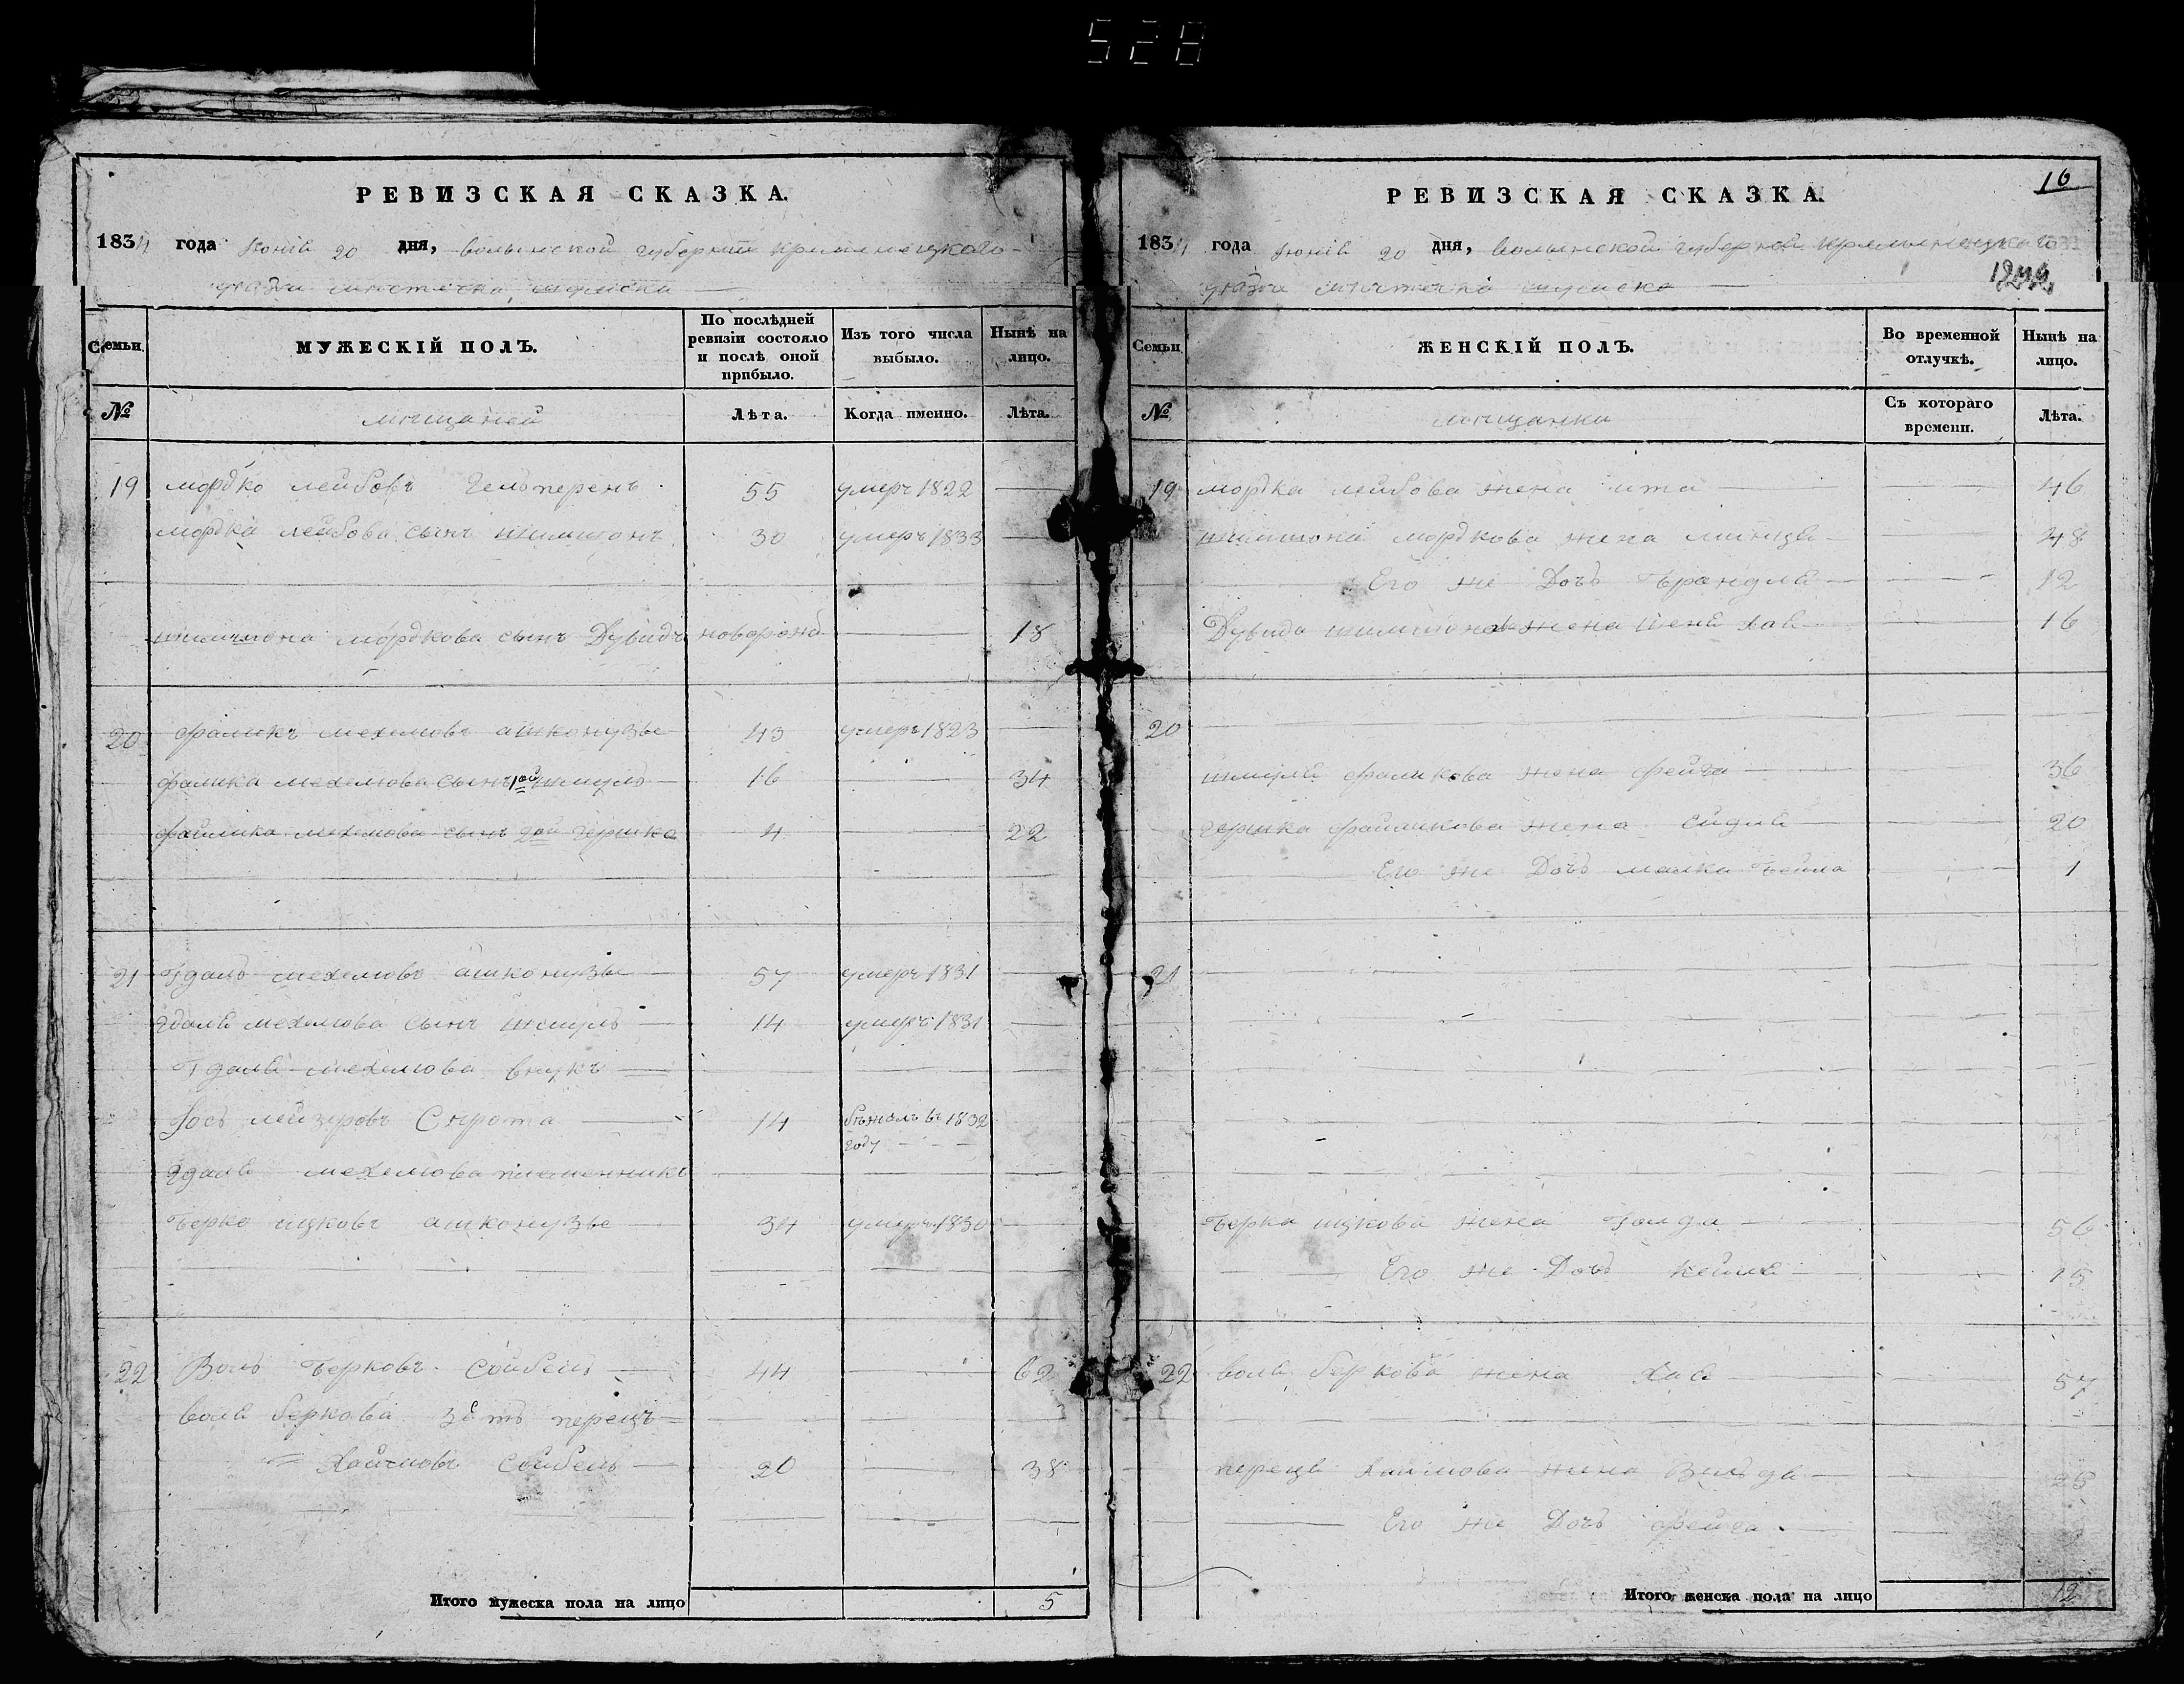 528
РЕВИЗСКАЯ СКАЗКА.
1834 года Юнiя 20 дня, волынской губернiи кремянецкаго
уезда местечка шумска
Семьи МУЖЕСКІЙ ПОЛЪ. По послѣдней ревизіи состояло и послѣ оной прибыло. Изъ того числа выбыло. Нынѣ на лицо.
№ мещаней Лѣта. Когда именно. Лѣта.
19 мордко лейбовъ Гельперенъ 55 умеръ 1822
мордка лейбова сынъ шимшонъ 30 умеръ 1833
шимшона мордкова сынъ Дувидъ новорожд 18
20 фаликъ мехелювъ ашконузье 43 умеръ 1823
фалика мехелюва сынъ 1ой шмуль 16 34
файлика мехелюва сынъ 2ой гершко 4 22
21 Гдаль мехелювъ ашконузье 57 умеръ 1831
гдаля мехелюва сынъ шмуль 14 умеръ 1831
Гдаля мехелюва внукъ
Іось лейзеровъ Сирота 14 бежалъ въ 1832
году
гдаля мехелюва племенникъ
Берко ицковъ ашконузье 34 умеръ 1830
22 Воль Берковъ Сойбель 44 62
воля беркова зять перецъ
Хаймовъ Сойбель 20 38
Итого мужеска пола на лицо 5
16
РЕВИЗСКАЯ СКАЗКА.
1834 года Юнiя 20 дня, волынской губернiи кремянецкаго
уезда местечка шумска
Семьи ЖЕНСКІЙ ПОЛЪ. Во временной отлучкѣ. Нынѣ на лицо.
№ мещанки Съ котораго времени. Лѣта.
19 мордка лейбова жена ита 46
шимшона мордкова жена минця 48
Его же Дочь Брандля 12
Дувида шимшонов жена шеня хая 16
20
шмуля фаликова жена фейга 36
гершка файликова жена сидля 20
Его же Дочь малка Бейла 1
21
Берка ицкова жена Голда 56
Его же Дочь Кейля 15
22 воля беркова жена Хая 57
переца Хаимова жена
Его же Дочь фейга
Итого женска пола на лицо 12